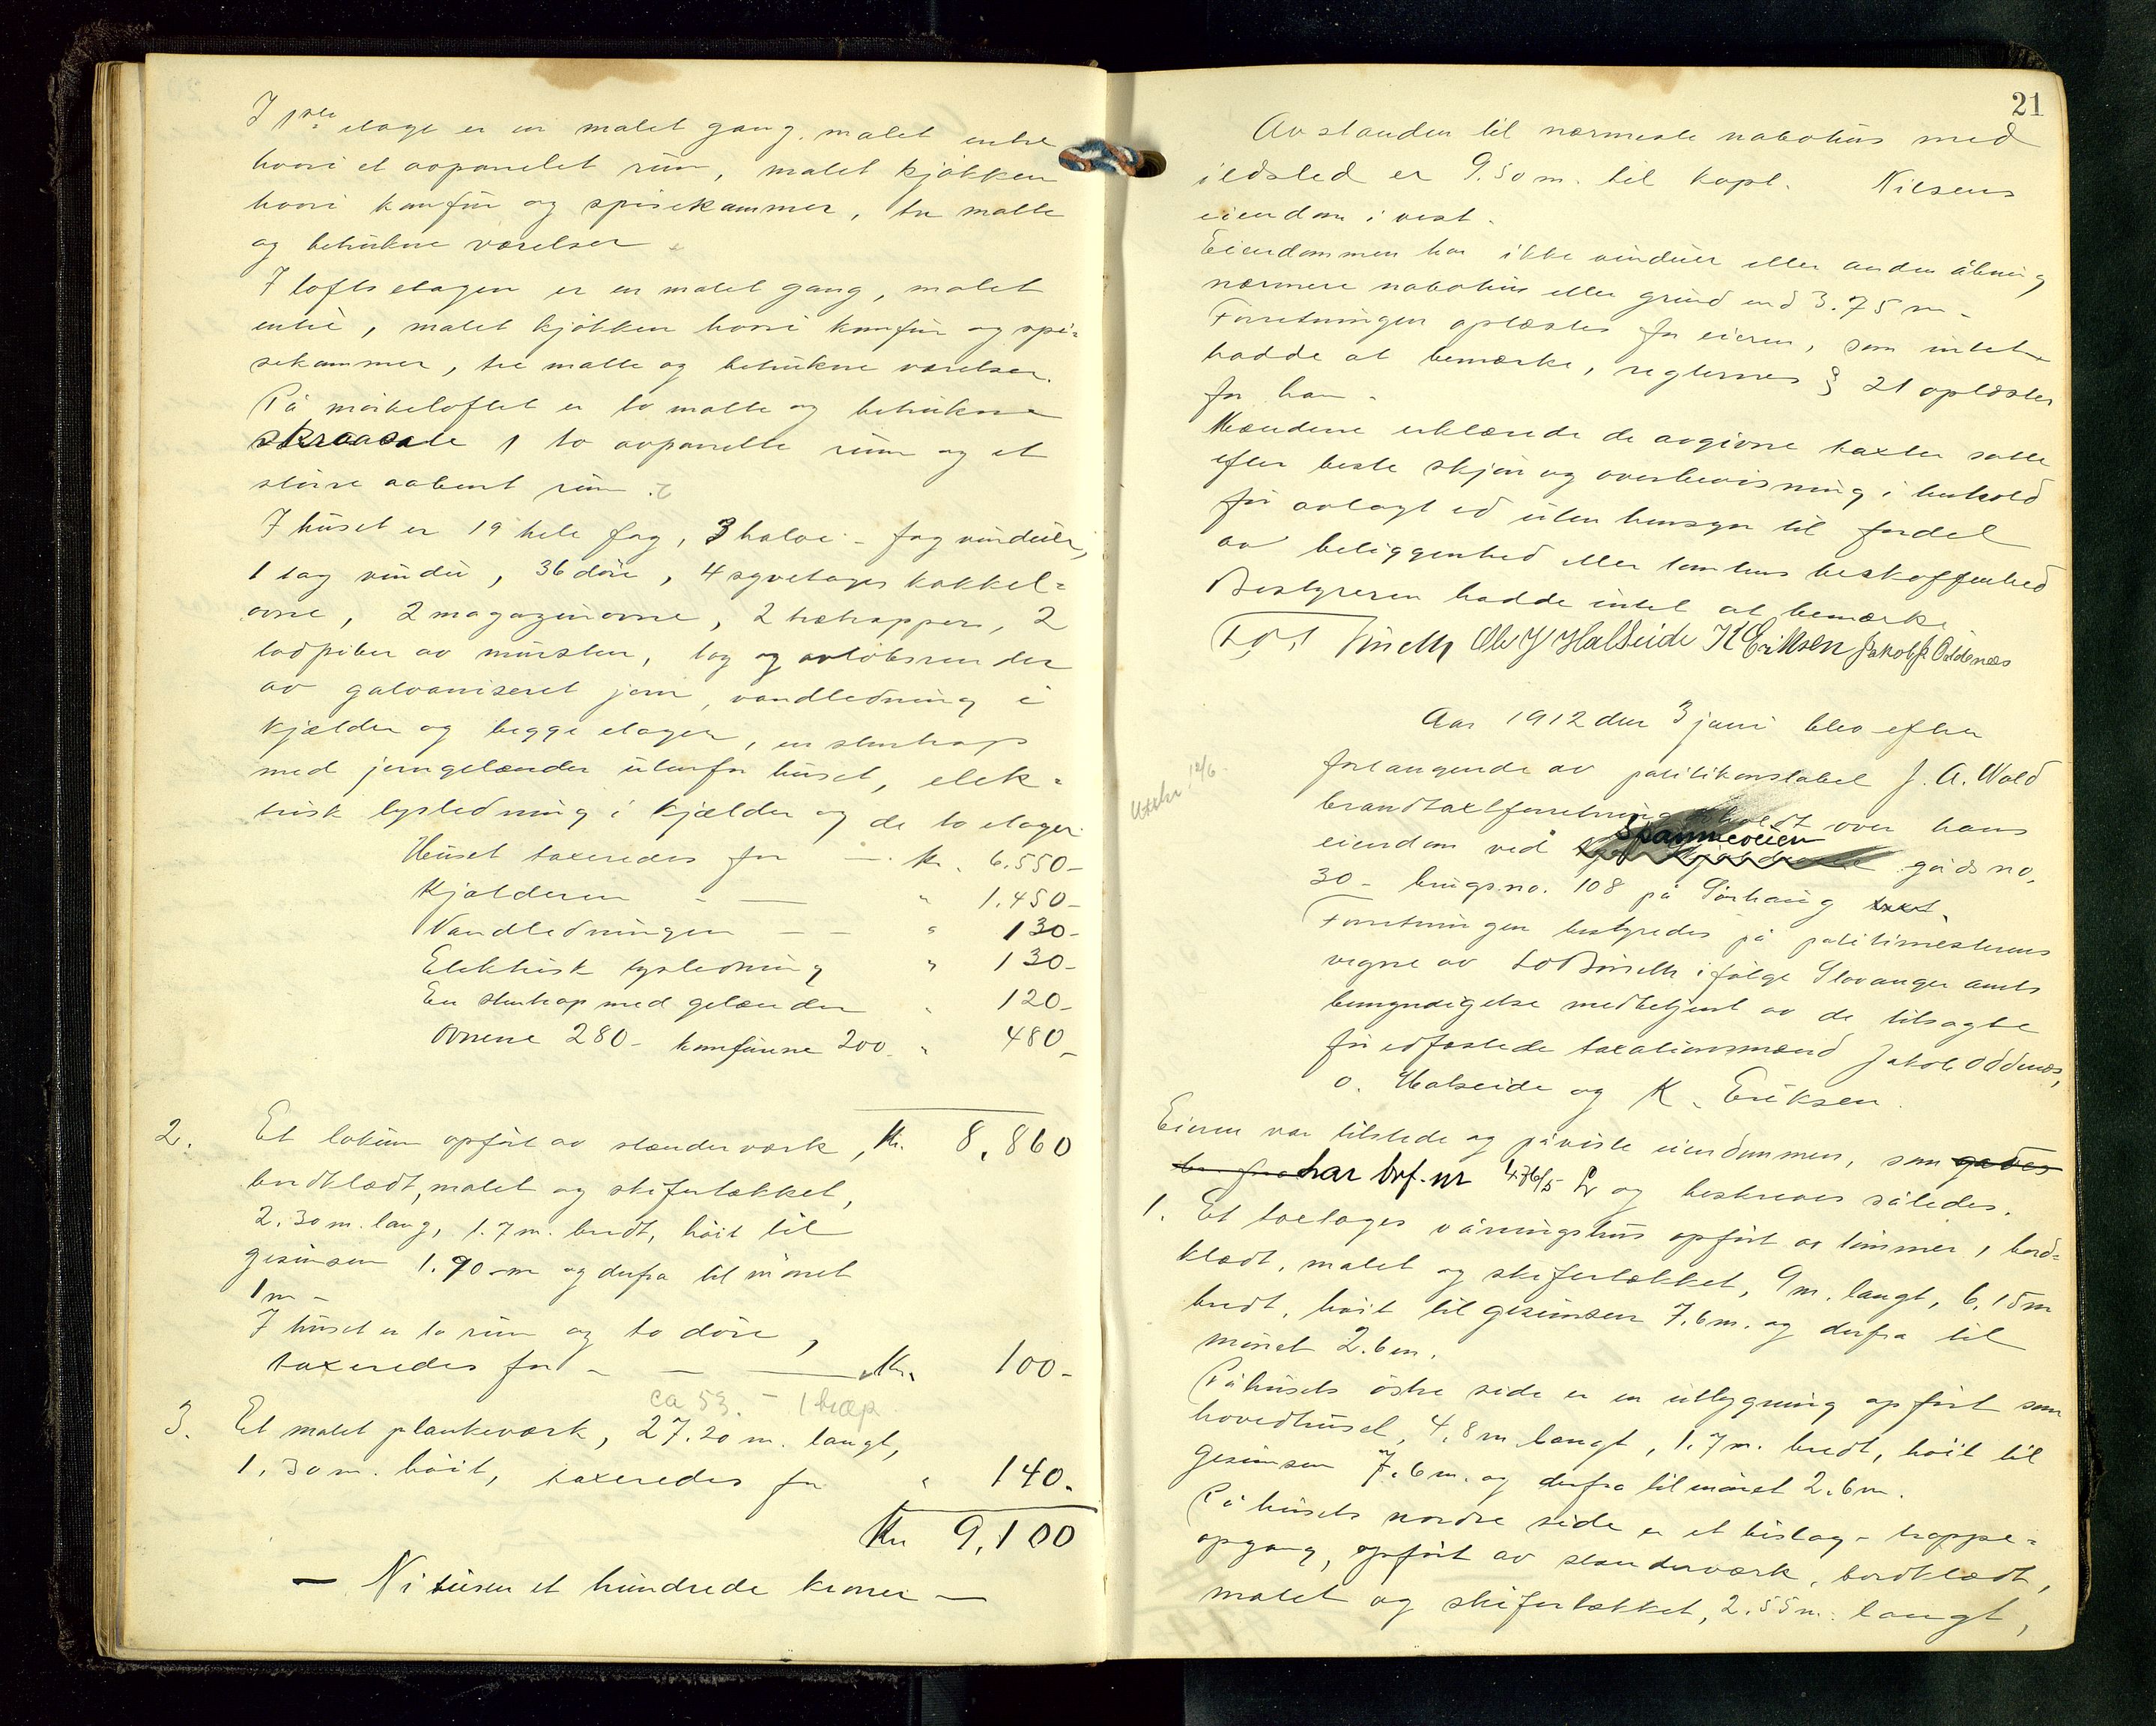 I 1ste etage er en malet gang, malet entre
hvori et avpanelet rum, malet kjøkken
hvori komfur og spisekammer, tre malte
og betrukne værelser
I loftsetagen er en malet gang, malet
entré, malet kjøkken hvori komfur og spi=
sekammer, tre malte og betrukne værelser.
På mørkeloftet er to malte og betrukne
skraasale, to avpanelte rum og et
større aabent rum.
I huset er 19 hele fag, 3 halve - fag vinduer,
1 tag vindu, 36 døre, 4 syvetages kakkel=
ovne, 2 magazinovne, 2 trætrapper, 2
lodpiber av mursten, tag og avløbsrender
av galvaniseret jern, vandledning i
kjælder og begge etager, en stentrap
med jerngelænder utenfor huset, elek=
trisk lysledning i kjælder og de to etager.
Huset taxeredes for — kr. 6.550-
Kjælderen - — " 1.450-
Vandledningen — — " 130-
Elektrisk lysledning " 130-
En stentrap med gelænder " 120-
Ovnene 280- komfurene 200 " 480-
2. Et lokum opført av stænderværk, Kr. 8.860
bordklædt, malet og skifertækket,
2.30 m. lang, 1.7 m. bredt, høit til
gesimsen 1.90 m og derfra til mønet
1 m -
I huset er to rum og to døre,
taxeredes for - — — Kr. 100-
ca 53. - 1 trap
3. Et malet plankeværk, 27.20 m. langt,
1.30 m. høit, taxeredes for " 140.
Kr 9.100
— Ni tusen et hundrede kroner —
21
Avstanden til nærmeste nabohus med
ildsted er 9.50 m. til kapt. Nilsens
eiendom i vest.
Eiendommen har ikke vinduer eller anden åbning
nærmere nabohus eller grund end 3.75 m -
Forretningen oplæstes for eieren, som intet
hadde at bemærke, reglernes § 21 oplæstes
for ham -
Mændene erklærede de avgivne taxter satte
efter beste skjøn og overbevisning i henhold
før avlagt ed uten hensyn til fordel
av beliggenhed eller tomtens beskaffenhed
Bestyreren hadde intet at bemærke
Ole J Halseide K Eriksen Jakob Oddenes
Aar 1912 den 3 juni blev efter
forlangende av politikonstabel J. A. Wold
brandtaxtforretning holdt over hans
eiendom ved Spanneveien gårds no.
30 - brugs no. 108 på Sørhaug
Forretningen bestyredes på politimesterens
vegne av ifølge Stavanger amts
bemyndigelse medbetjent av de tilsagte
før edfæstede taxationsmænd Jakob Oddenes,
O. Halseide og K. Eriksen.
Eieren var tilstede og påviste eiendommen, som
har brf. nr 476/5 og beskreves således.
1. Et toetages våningshus opført av tømmer, bord=
klædt, malet og skifertækket, 9 m. langt, 6.15 m
bredt, høit til gesimsen 7.6 m. og derfra til
mønet 2.6 m.
På husets østre side er en utbygning opført som
hovedhuset, 4.8 m langt, 1.7 m. bredt, høit til
gesimsen 7.6 m. og derfra til mønet 2.6 m.
På husets nordre side er et bislag - trappe=
opgang, opført av stenderværk, bordklædt,
malet og skifertækket, 2.55 m. langt,